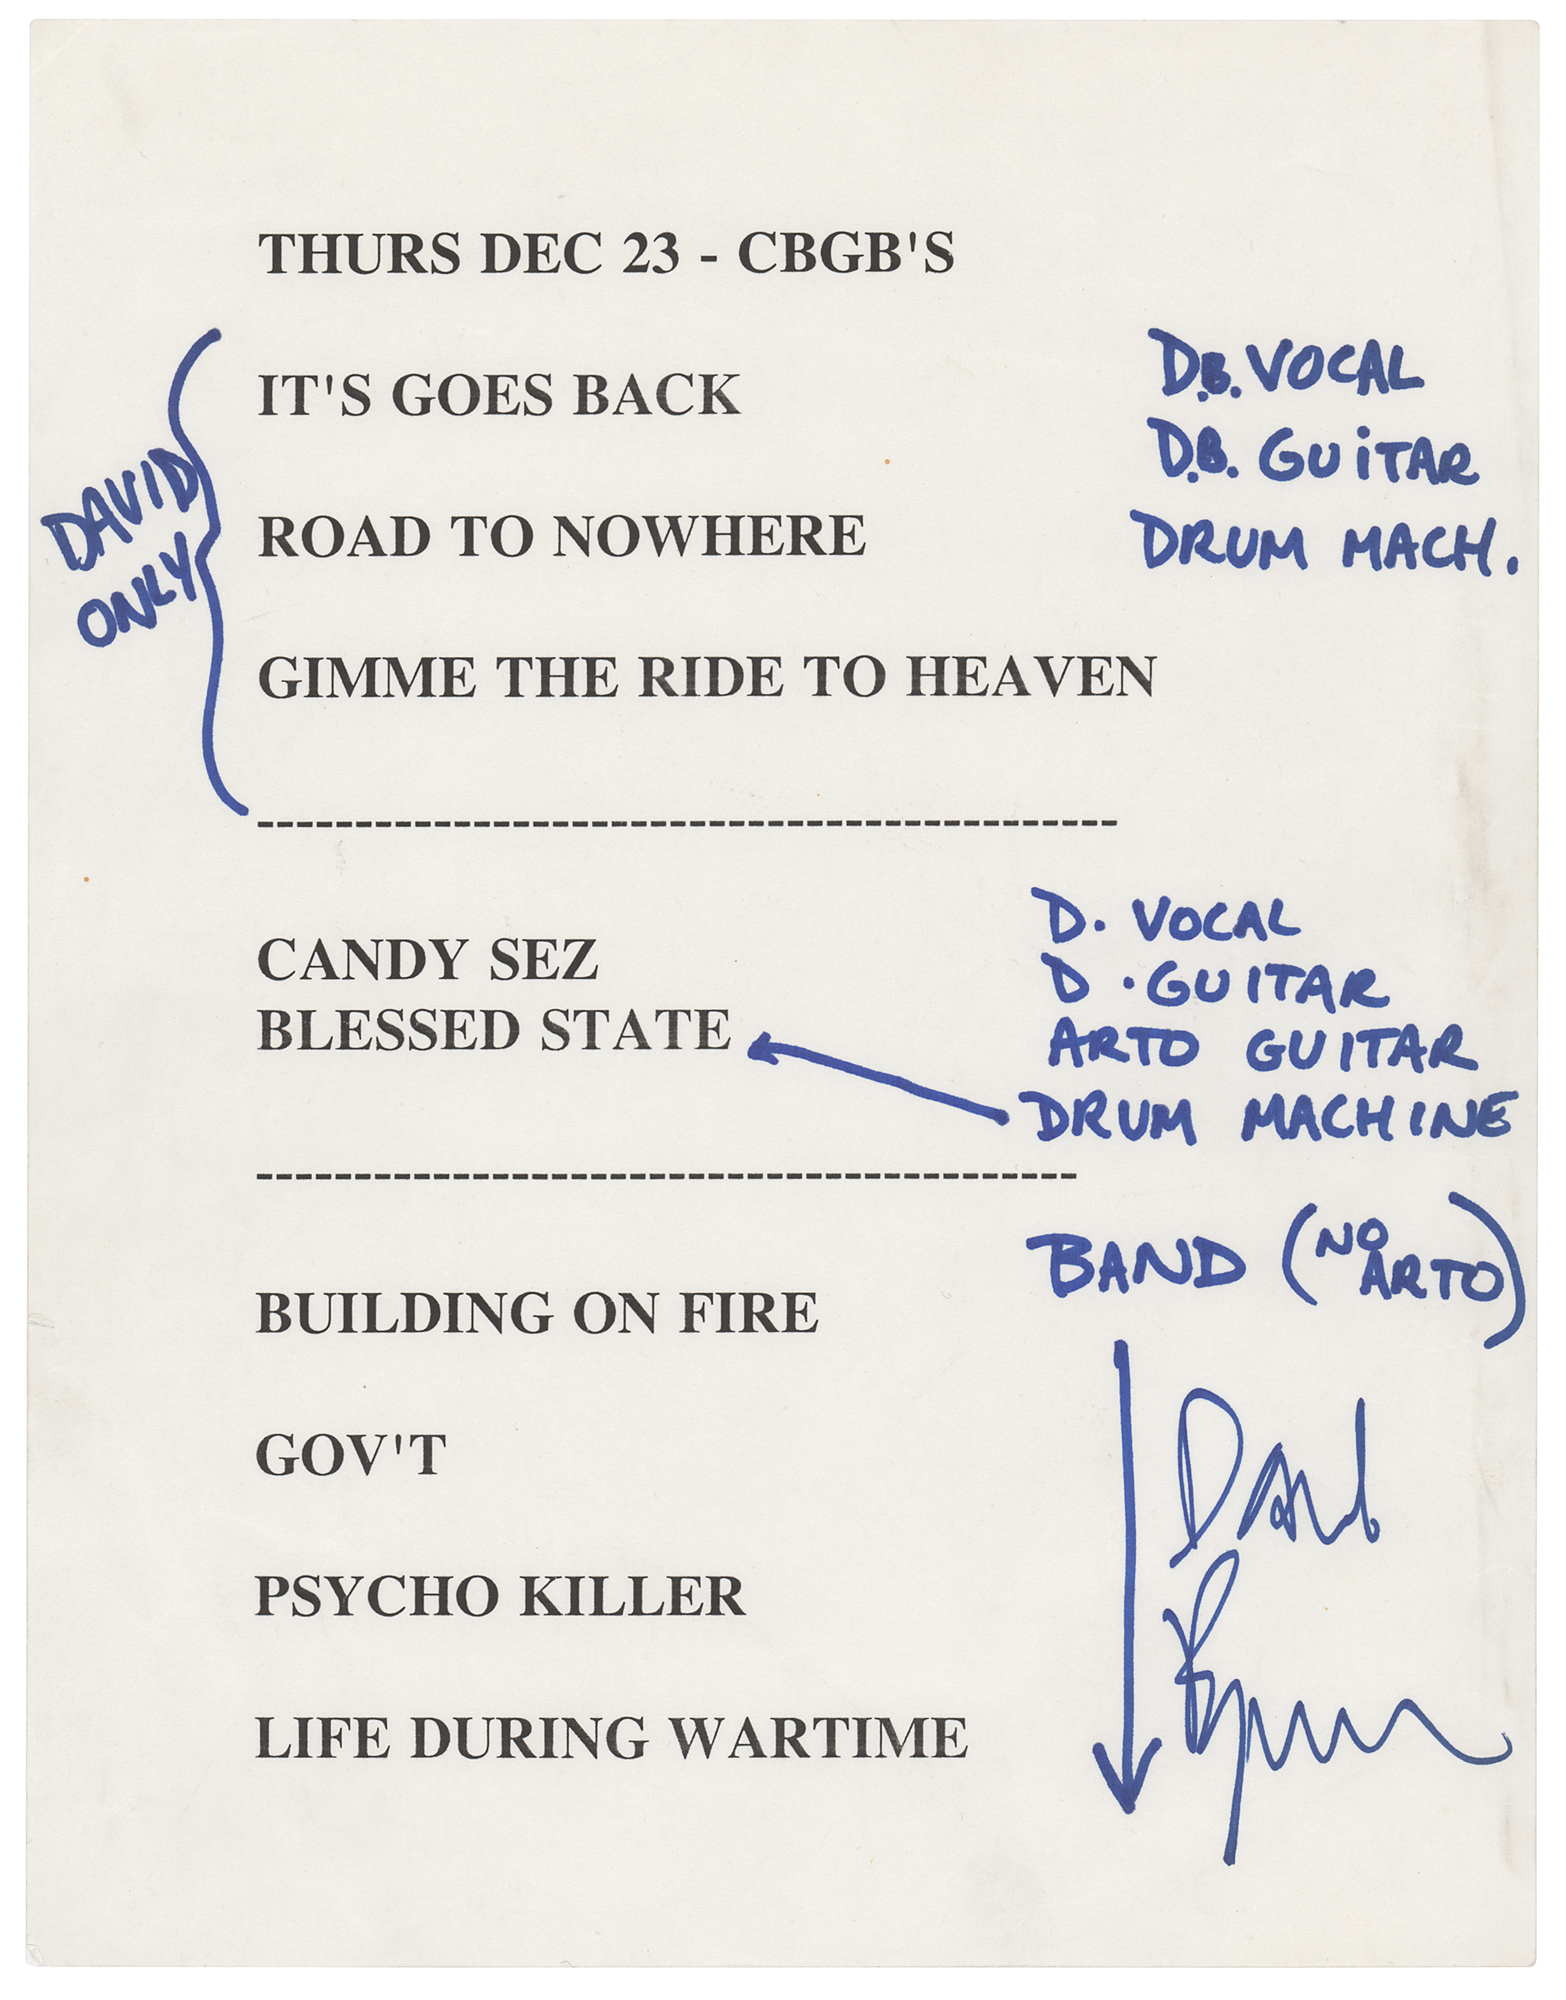 THURS DEC 23 - CBGB'S
IT'S GOES BACK
D.B. VOCAL
D.B. GUITAR
DRUM MACH.
DAVID
ONLY
ROAD TO NOWHERE
GIMME THE RIDE TO HEAVEN
--------------------------------------------------------
CANDY SEZ
BLESSED STATE
D. VOCAL
D. GUITAR
ARTO GUITAR
DRUM MACHINE
------------------------------------------------------
BAND (NO ARTO)
BUILDING ON FIRE
GOV'T
PSYCHO KILLER
LIFE DURING WARTIME
David
Byrne